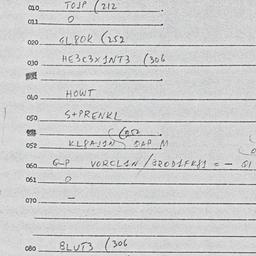 010 TOJP (212
011 O
020 GLPOK (252
030 HE3C3X1NT3 (306
040 HOWT
050 S+PRENKL
(052
052 KLPAJ1N OAP M
060 G-P VORCL1N
061 O
070 -
080 BLUT3 (306